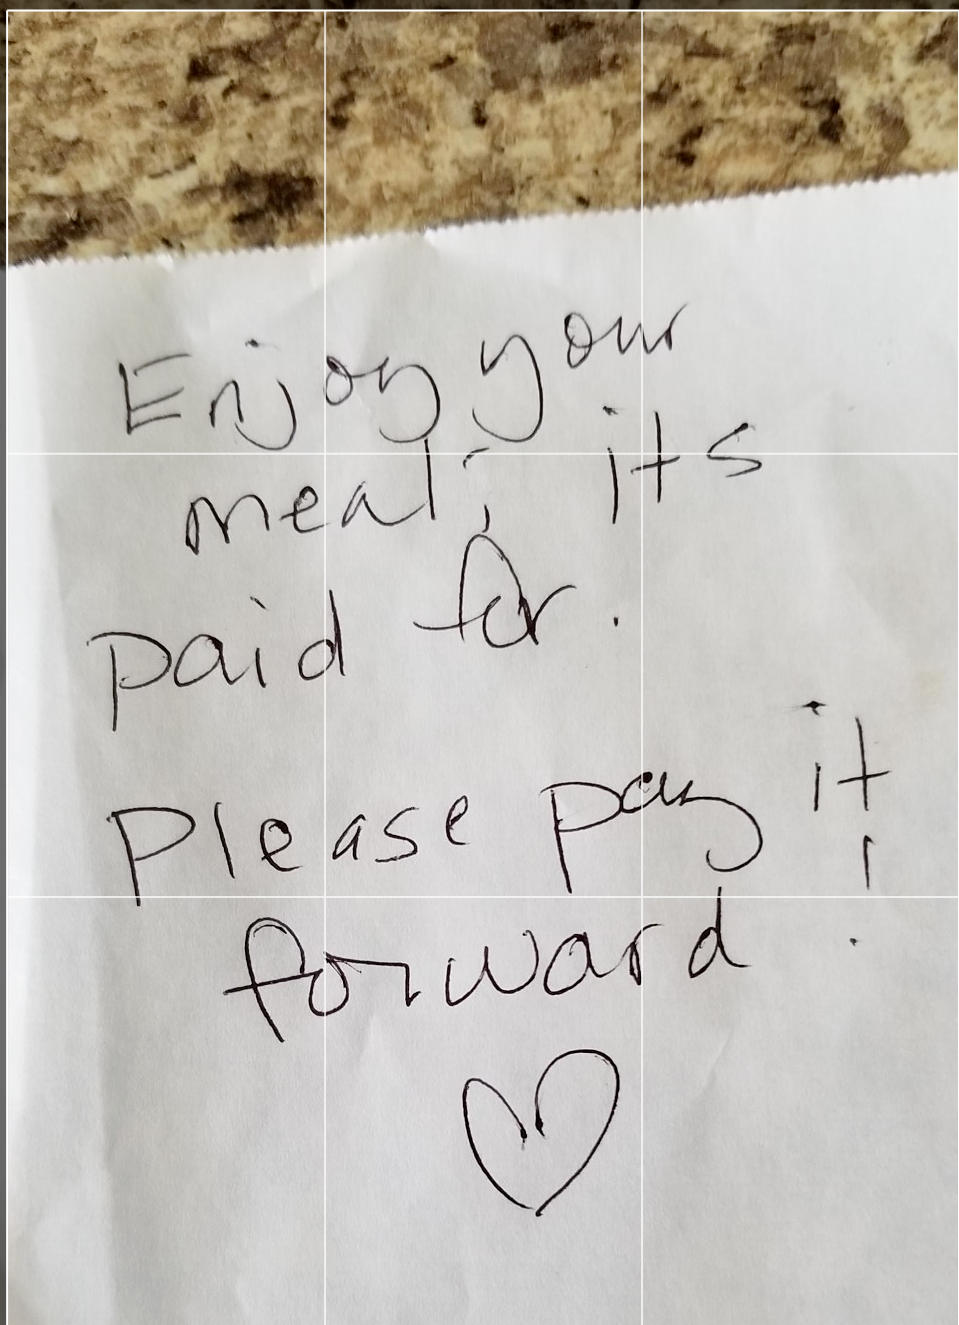 Enjoy your
meal; its
paid for.
Please pay it
forward!